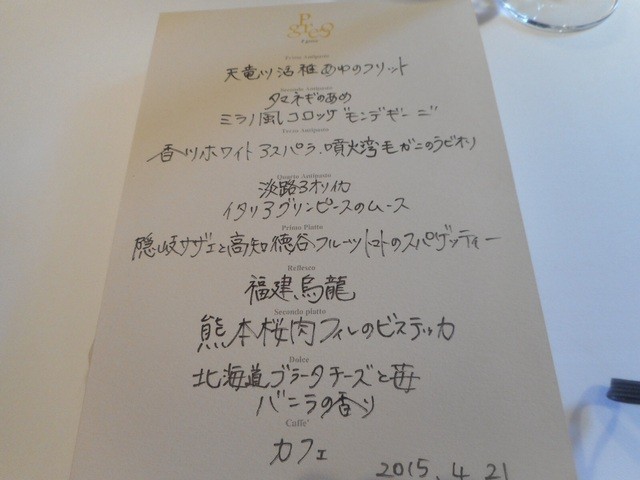 Pgreco
Primo Antipasto
天竜川活稚あゆのフリット
Secondo Antipasto
タマネギのあめ
ミラノ風コロッケ"モンデギーニ"
Terzo Antipasto
香川ホワイトアスパラ、噴火湾毛ガニのラビオリ
Quarto Antipasto
淡路アオリイカ
イタリアグリンピースのムース
Primo Piatto
隠岐サザエと高知徳谷フルーツトマトのスパゲッティー
Reflesso
福建烏龍
Secondo piatto
熊本桜肉フィレのビステッカ
Dolce
北海道ブラータチーズと苺
バニラの香り
Caffe'
カフェ
2015.4.21